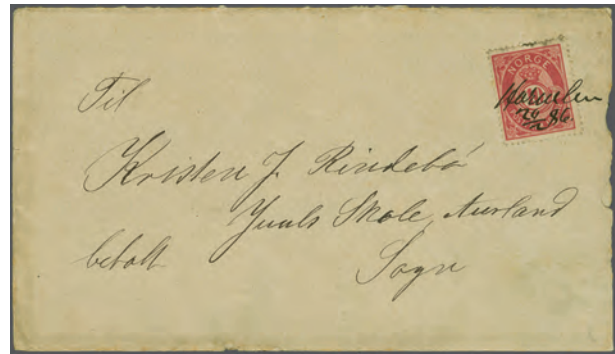 NORGE
24/2 86
Til
Kristen J. Rindebö
Juuls Skole, Aurland
betalt Sogn